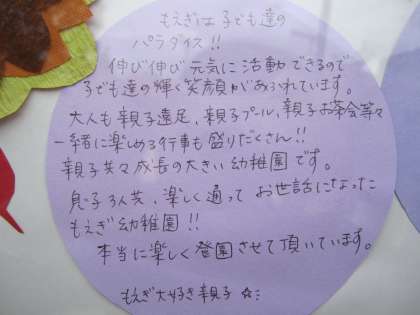 もえぎは子ども達の
パラダイス!!
伸び伸び元気に活動できるので
子ども達の輝く笑顔があふれています。
大人も親子遠足、親子プール、親子お茶会等々
一緒に楽しめる行事も盛りだくさん!!
親子共々成長の大きい幼稚園です。
息子3人共、楽しく通って お世話になった
もえぎ幼稚園!!
本当に楽しく登園させて頂いています。
もえぎ大好き親子 ☆